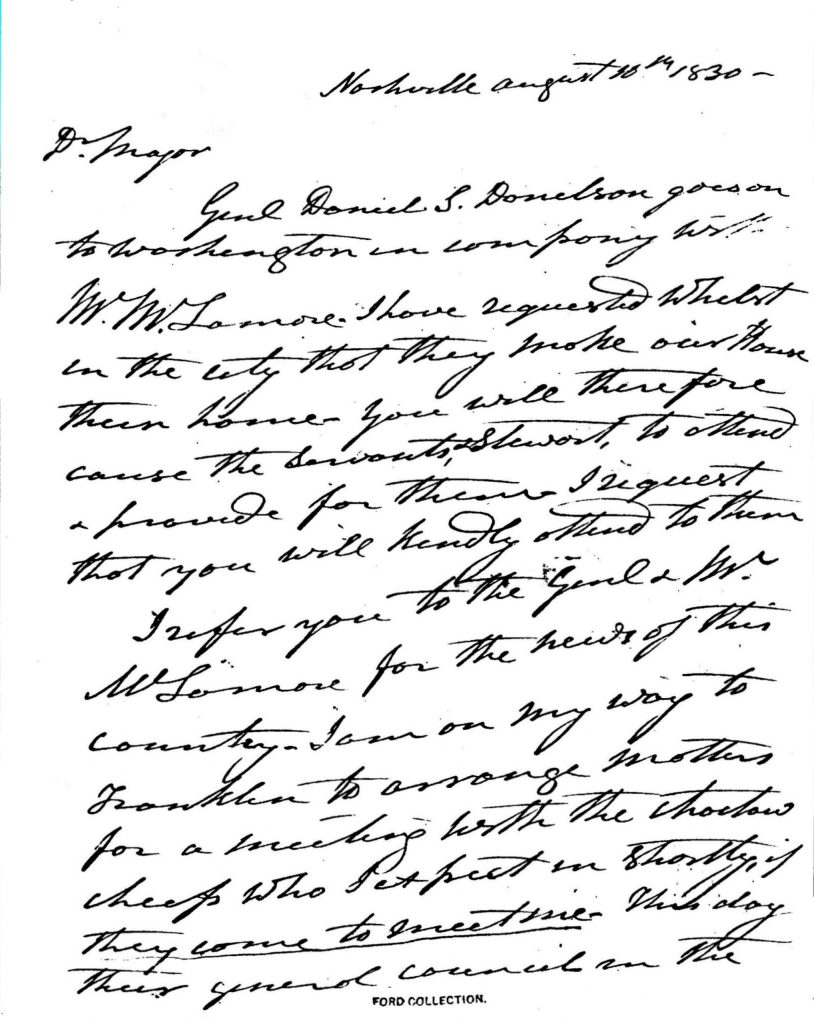 Nashville august 10th 1830 –
Dr. Major
Genl Daniel S. Donelson goes on
to washington in company with
Mr. McLamore. I have requested whilst
in the city that they make our House
their home – you will therefore
cause the servants, & Stewart, to attend
& provide for them – I request
that you will kindly attend to them
I refer you to the Genl & Mr.
McLamore for the news of this
country – I am on my way to
Franklin to arrange matters
for a meeting with the choctaw
cheefs who I expect in shortly, if
they come to meet me – This day
their general council in the
FORD COLLECTION.